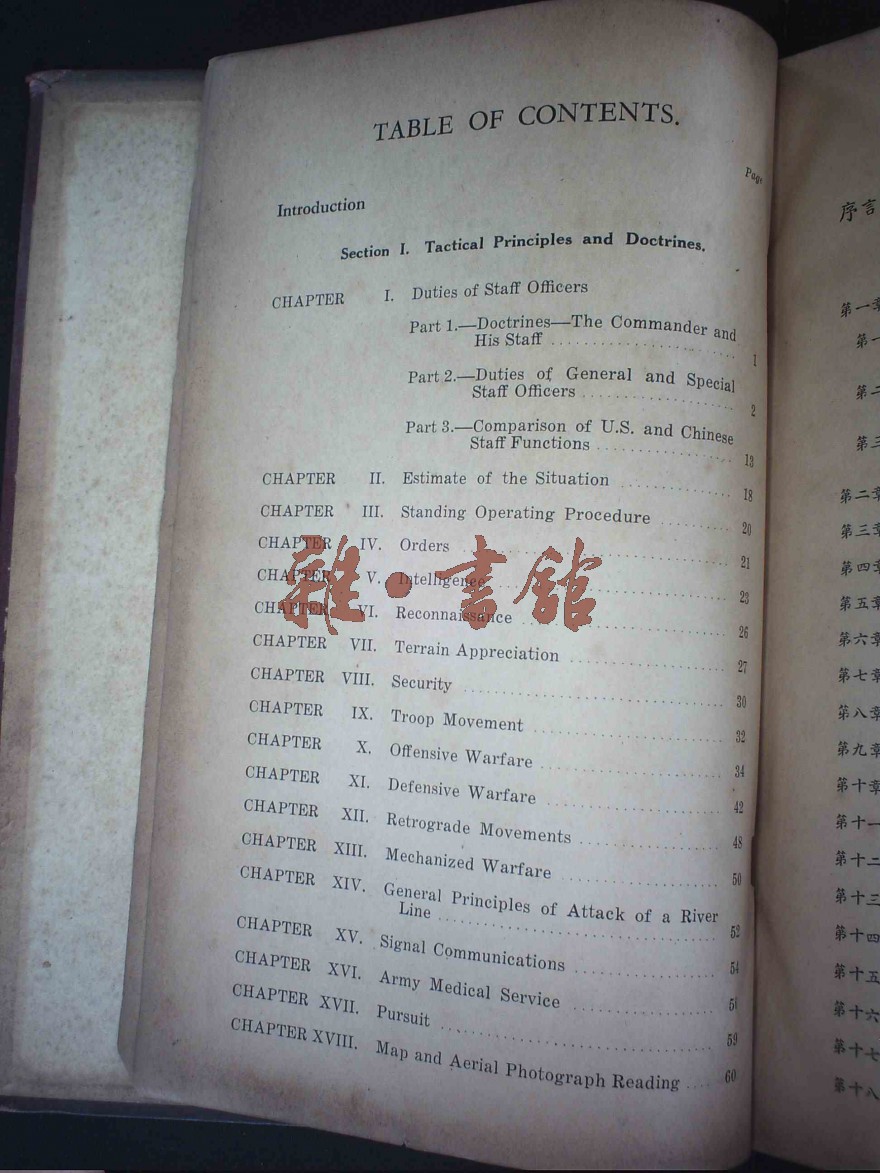 TABLE OF CONTENTS.
Page
Introduction
Section I. Tactical Principles and Doctrines.
CHAPTER I. Duties of Staff Officers
Part 1.—Doctrines—The Commander and
His Staff 1
Part 2.—Duties of General and Special
Staff Officers 2
Part 3.—Comparison of U.S. and Chinese
Staff Functions 13
CHAPTER II. Estimate of the Situation 18
CHAPTER III. Standing Operating Procedure 20
CHAPTER IV. Orders 21
CHAPTER V. Intelligence 23
CHAPTER VI. Reconnaissance 26
CHAPTER VII. Terrain Appreciation 27
CHAPTER VIII. Security 30
CHAPTER IX. Troop Movement 32
CHAPTER X. Offensive Warfare 34
CHAPTER XI. Defensive Warfare 42
CHAPTER XII. Retrograde Movements 48
CHAPTER XIII. Mechanized Warfare 50
CHAPTER XIV. General Principles of Attack of a River
Line 52
CHAPTER XV. Signal Communications 54
CHAPTER XVI. Army Medical Service
CHAPTER XVII. Pursuit 59
CHAPTER XVIII. Map and Aerial Photograph Reading 60
雜·書館
序言
第一章
第一
第二
第三
第二章
第三章
第四章
第五章
第六章
第七章
第八章
第九章
第十章
第十一
第十二
第十三
第十四
第十五
第十六
第十七
第十八